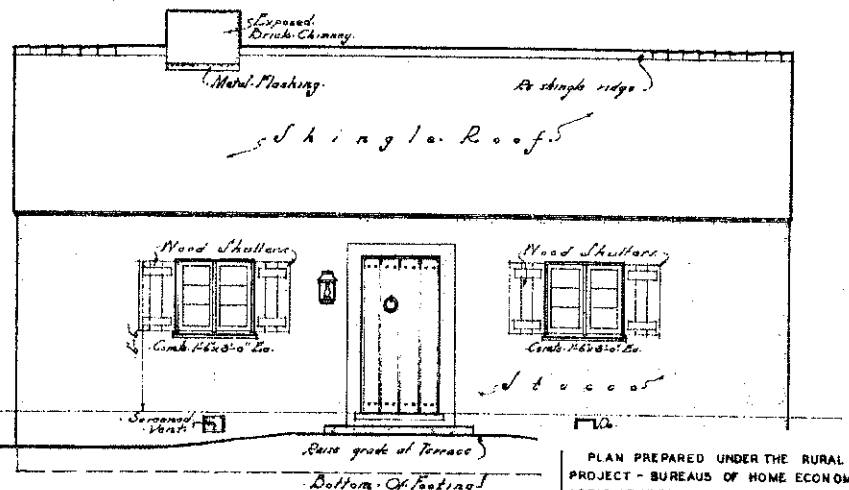 Exposed
Brick Chimney.
Metal Flashing.
shingle ridge
Shingle Roof.
Wood Shutters
Wood Shutters
Comb. 1'-6"x3'-0" Ea.
Comb. 1'-6"x3'-0" Ea.
Stucco
Screened
Vent.
Do.
Raise grade at Terrace
Bottom Of Footing
PLAN PREPARED UNDER THE RURAL
PROJECT - BUREAUS OF HOME ECONOM